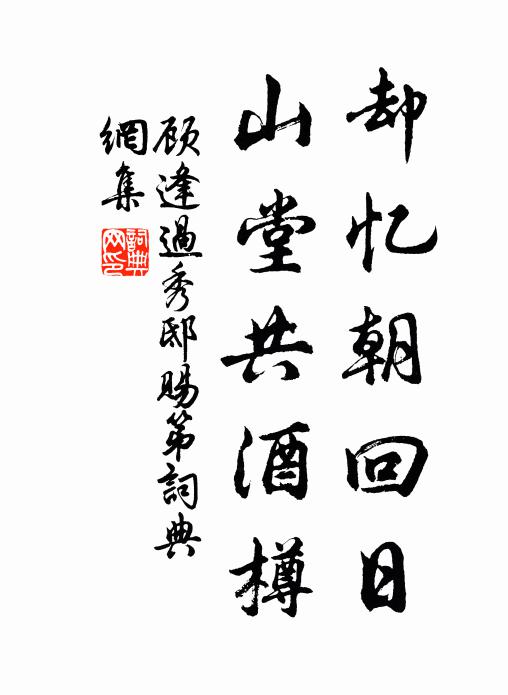 却忆朝回日
山堂共酒樽
顾逢過秀邸賜第詞典
網集
詞典
网印